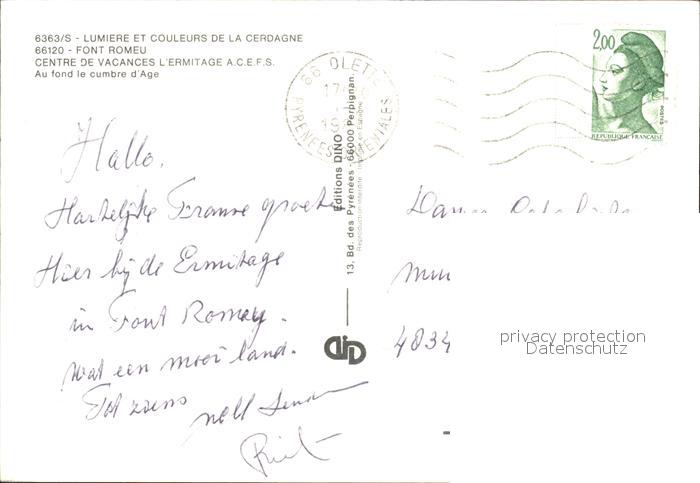 6363/S - LUMIERE ET COULEURS DE LA CERDAGNE
66120 - FONT ROMEU
CENTRE DE VACANCES L'ERMITAGE A.C.E.F.S.
Au fond le cumbre d'Age
2,00
POSTES
REPUBLIQUE FRANÇAISE
66 OLETTE
17
PYRENEES ORIENTALES
Hallo.
Hartelijke Franse groeten
Hier bij de Ermitage
in Font Romey.
wat een mooi land.
Tot ziens
nell
Riet
Editions DINO
13, Bd. des Pyrénées - 66000 Perpignan
Reproduction interdite
4834
privacy protection
Datenschutz